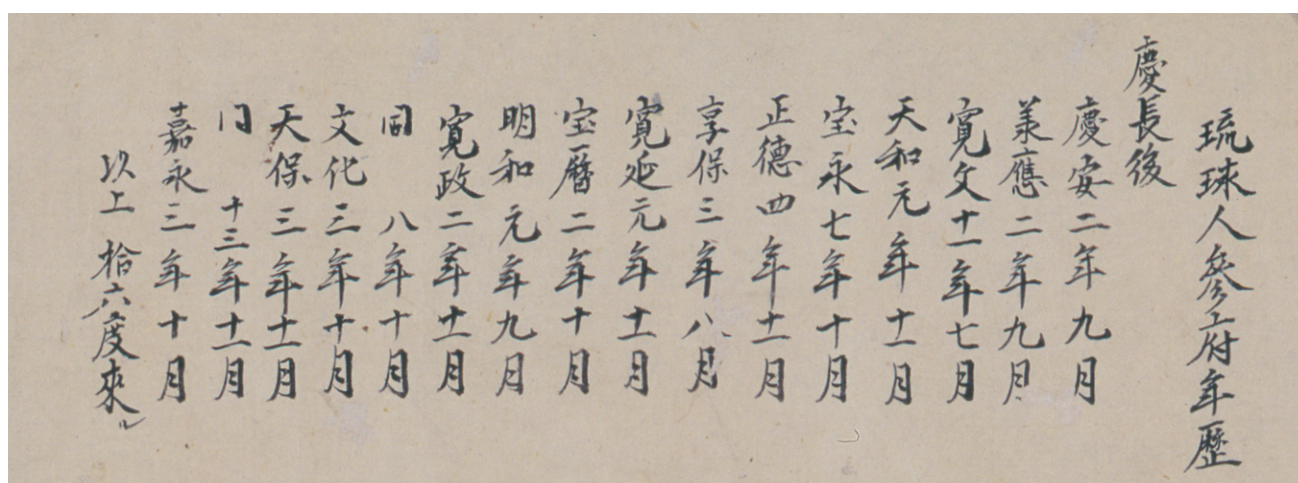 琉球人參江府年歷
慶長後
慶安二年九月
承應二年九月
寛文十一年七月
天和元年十一月
宝永七年十月
正德四年十一月
享保三年八月
寛延元年十一月
宝曆二年十月
明和元年九月
寛政二年十一月
同 八年十月
文化三年十月
天保三年十一月
同 十三年十一月
嘉永三年十月
以上拾六度來